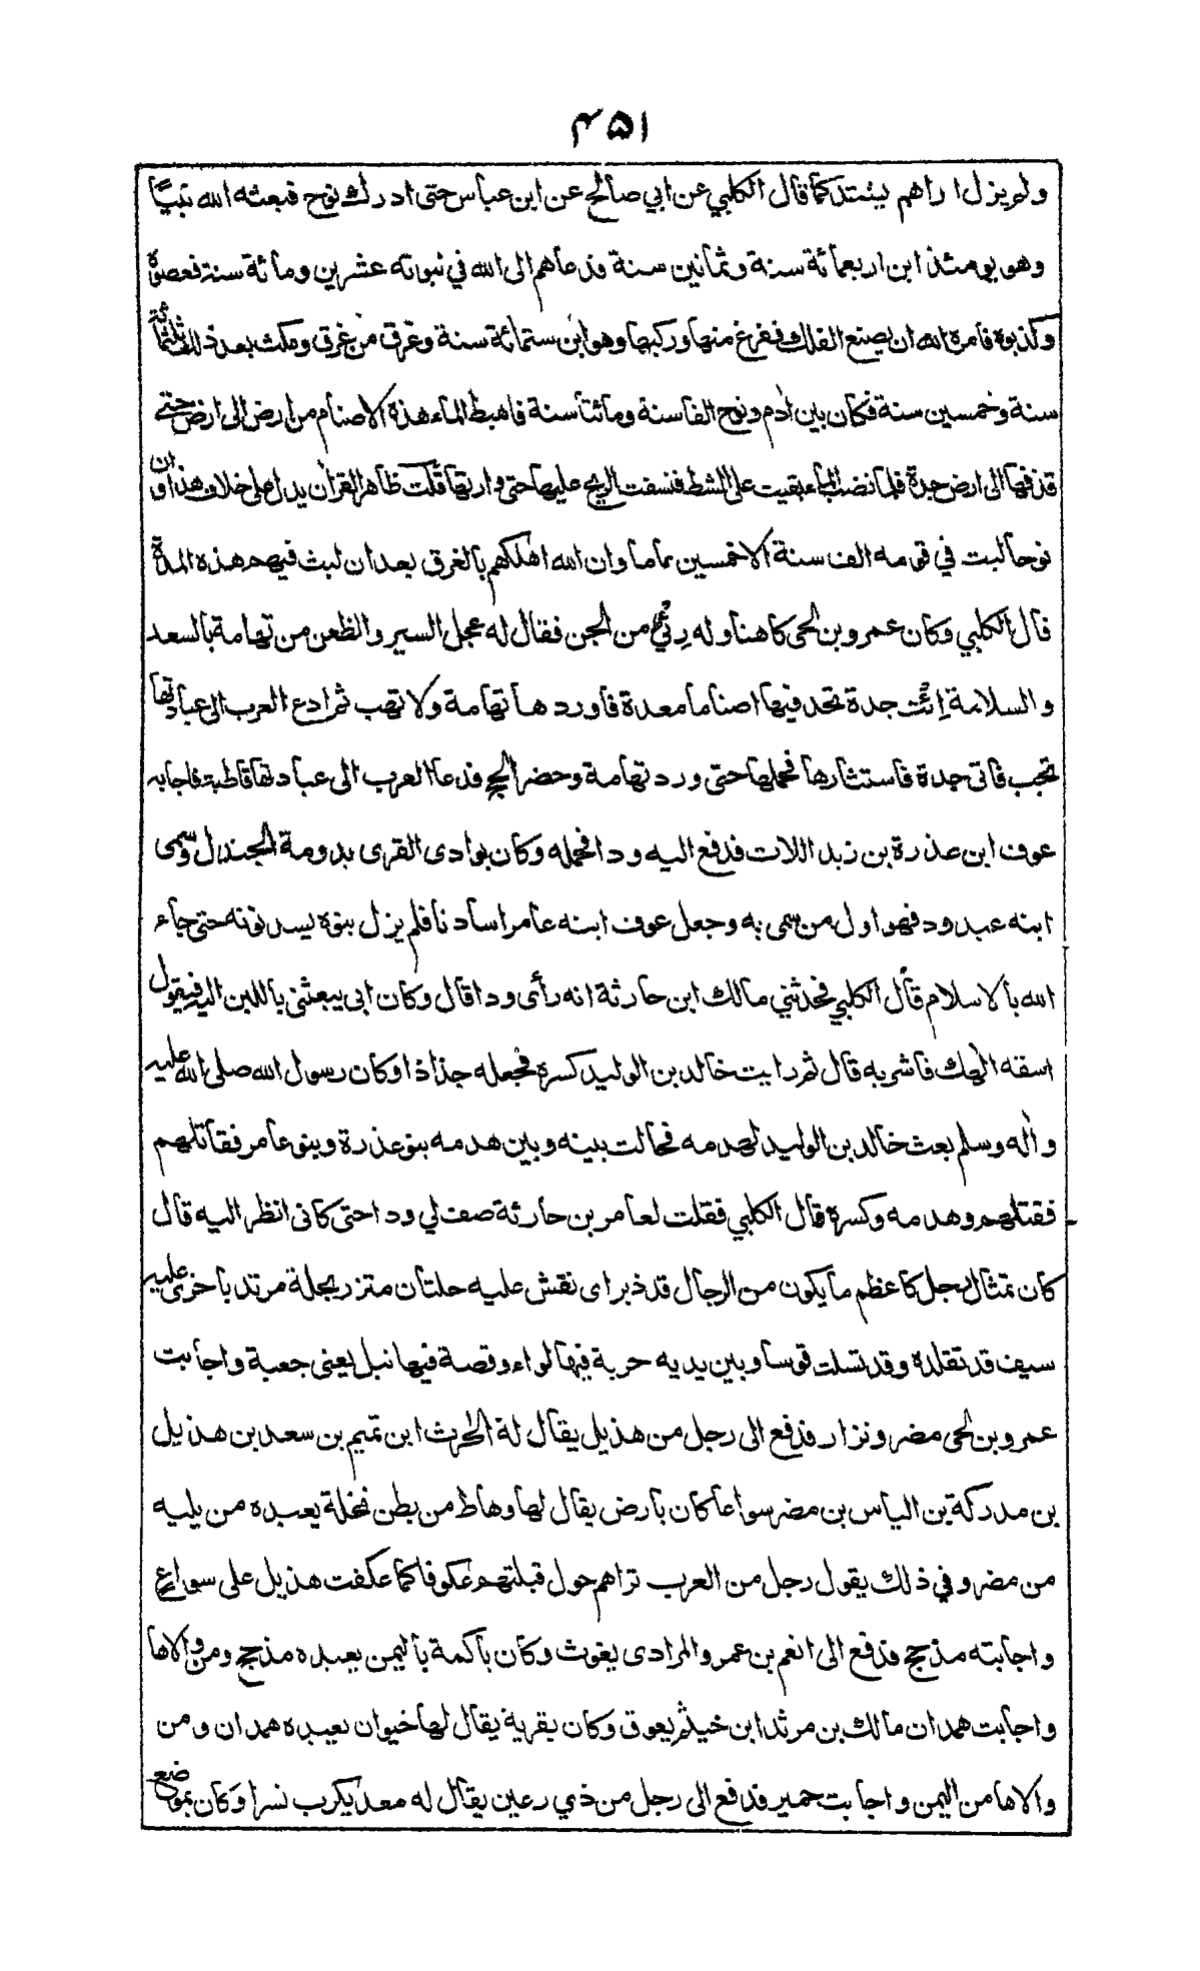 ۴۵۱
ولم يزل امراهم يشتد كما قال الكلبي عن ابي صالح عن ابن عباس حتى ادرك نوح فبعثه الله نبيًّا
وهو يومئذ ابن اربعمائة سنة وثمانين سنة فدعاهم الى الله في نبوته عشرين ومائة سنة فعصوه
وكذبوه فامره الله ان يصنع الفلك ففرغ منها وركبها وهو ابن ستمائة سنة وغرق من غرق ومكث بعد ذلك ثلثمائة
سنة وخمسين سنة فكان بين اٰدم ونوح الفا سنة ومائتا سنة فاهبط الماء هذه الاصنام من ارض الى ارض حتى
قذفها الى ارض جدة فلما نضب الماء بقيت على الشط فنسفت الريح عليها حتى وارتها قلت ظاهر القراٰن يدل على خلاف هذا وان
نوحا لبث في قومه الف سنة الا خمسين عاما وان الله اهلكهم بالغرق بعد ان لبث فيهم هذه المدة
قال الكلبي وكان عمرو بن لحى كاهنا وله رِئيٌّ من الجن فقال له عجل السير والظعن من تهامة بالسعد
والسلامة اِئت جدة تجد فيها اصناما معدة فأوردها تهامة ولا تهب ثم ادع العرب الى عبادتها
تجب فاتى جدة فاستثارها فحملها حتى ورد تهامة وحضر الحج فدعا العرب الى عبادتها قاطبة فاجابه
عوف ابن عذرة بن زبد اللات فدفع اليه ودا فحمله وكان بوادى القرى بدومة الجندل وسمى
ابنه عبد ود فهو اول من سمى به وجعل عوف ابنه عامرا سادنا فلم يزل بنوه يسدنونه حتى جاء
الله بالاسلام قال الكلبي فحدثني مالك ابن حارثة انه رأى ودا قال وكان ابى يبعثني باللبن اليه فيقول
اسقه الٰهك فاشربه قال ثم رايت خالد بن الوليد كسره فجعله جذاذا وكان رسول الله صلى الله عليه
واٰله وسلم بعث خالد بن الوليد لهدمه فحالت بينه وبين هدمه بنو عذرة وبنو عامر فقاتلهم
فقتلهم وهدمه وكسره قال الكلبي فقلت لعامر بن حارثة صف لي ودا حتى كانى انظر اليه قال
كان تمثال رجل كاعظم ما يكون من الرجال قد ذبر اى نقش عليه حلتان متزر بحلة مرتد باخرى عليه
سيف قد تقلده وقد تنكب قوسا وبين يديه حربة فيها لواء وقصة فيها نبل يعنى جعبة واجابت
عمرو بن لحى مضر ونزار فدفع الى رجل من هذيل يقال له الحٰرث ابن تميم بن سعد بن هذيل
بن مدركة بن الياس بن مضر سواعا كان بارض يقال لها وهاط من بطن نخلة يعبده من يليه
من مضر وفي ذلك يقول رجل من العرب تراهم حول قبلتهم عكوفا كما عكفت هذيل على سواعٍ
واجابته مذحج فدفع الى انعم بن عمرو المرادى يغوث وكان باكمة باليمن يعبده مذحج ومن والاها
واجابت همدان مالك بن مرثد ابن خيثم يعوق وكان بقرية يقال لها خيوان يعبده همدان ومن
والاها من اليمن واجابت حمير فدفع الى رجل من ذي رعين يقال له معديكرب نسرا وكان بموضع